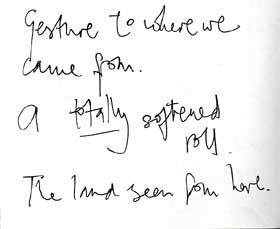 Gesture to where we
came from.
a totally softened
roll.
The land seen from here.